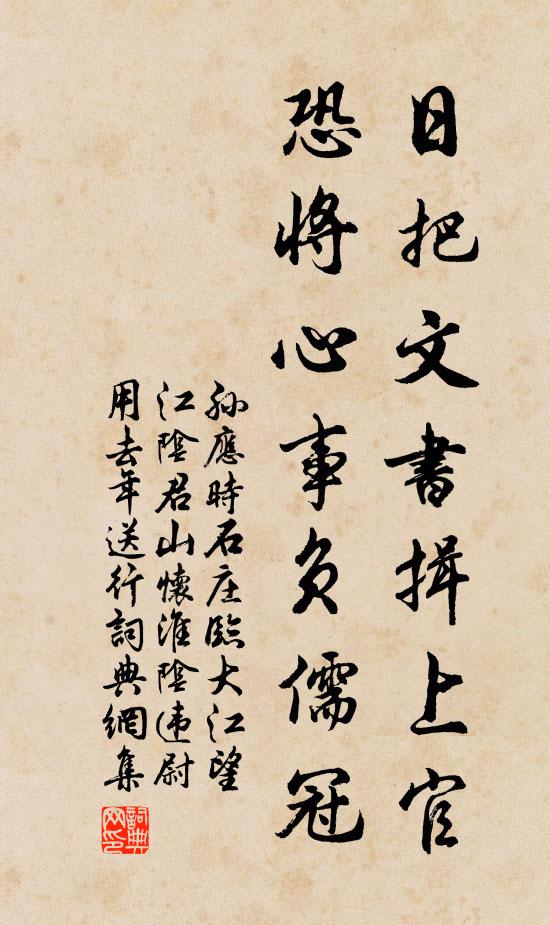 日把文書揖上官
恐將心事負儒冠
孫應時石庄臨大江望
江陰君山懷淮陰違尉
用去年送行詞典網集
詞典網印